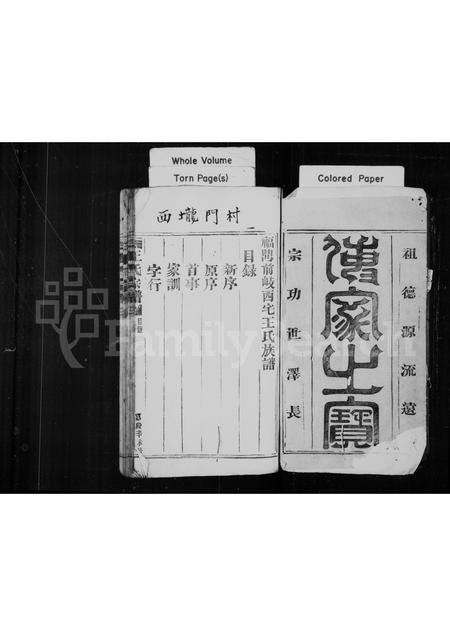 Whole Volume
Torn Page(s)
Colored Paper
祖德源流遠
傳家之寶
宗功世澤長
西壠門村
福鼎前岐西宅王氏族譜
目錄
新序
原序
首事
家訓
字行
FamilySearch